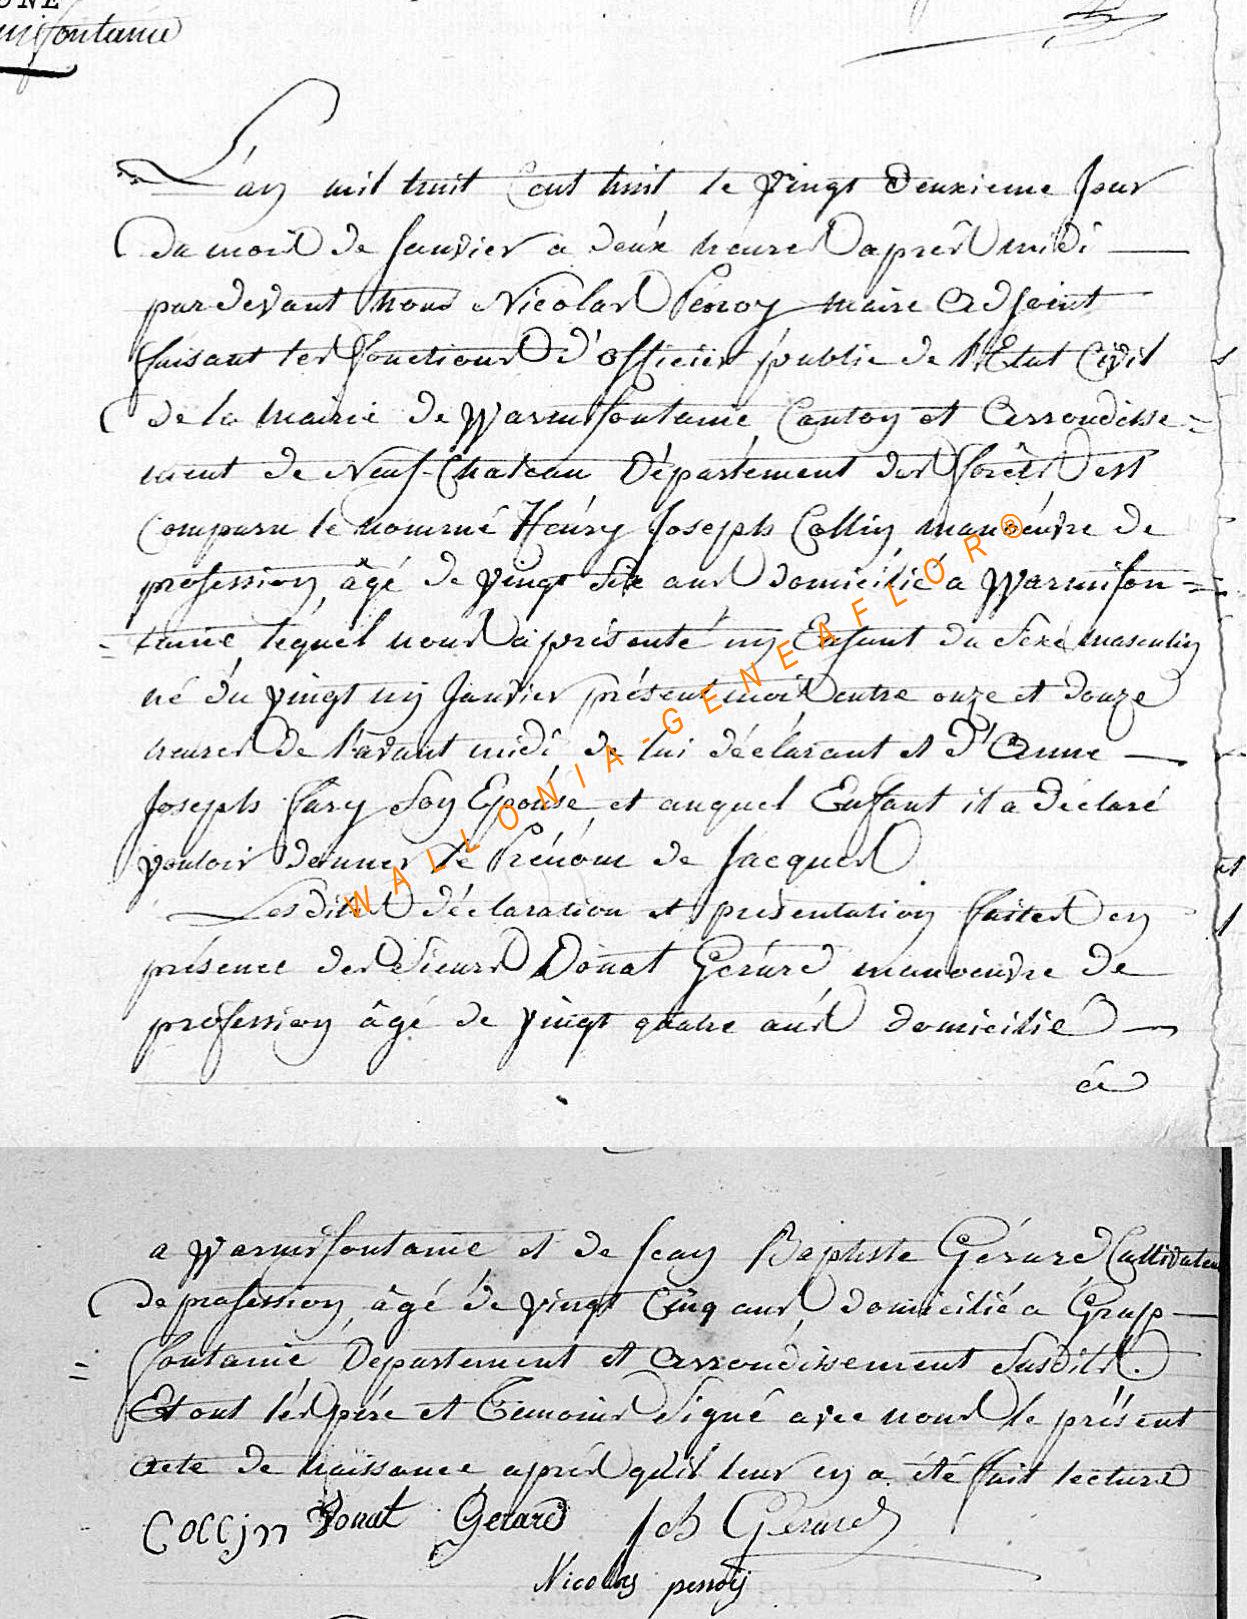 UNE
L'an mil huit Cent huit le vingt deuxieme Jour
du mois de Janvier a deux heures après midi
pardevant nous Nicolas Penoy maire Adjoint
faisant les fonctions d'officier public de l'Etat Civil
de la Mairie de Warmifontaine Canton et Arrondisse=
ment de Neuf-Chateau Département des forêts est
Comparu le nommé Henry Joseph Collin manoeuvre de
profession, âgé de vingt Six ans domicilié a Warmifon=
=taine, lequel nous a présenté un Enfant du Sexe masculin
né du vingt un Janvier présent mois entre onze et douze
heures de l'avant midi de lui déclarant et d'Anne
Joseph Son Epouse, et auquel Enfant il a déclaré
vouloir donner le Prénom de Jacques
Lesdites déclaration et présentation faites en
présence des Sieurs Donat Gérard manoeuvre de
profession âgé de vingt quatre ans domicilié
à
a Warmifontaine et de Jean Baptiste Gérard Cultivateur
de profession, âgé de vingt Cinq ans, domicilié a Grap
=fontaine, Département et Arrondissement Susdits.
Et ont les père et Temoins Signé avec nous le présent
acte de naissance après qu'il leur en a été fait lecture
Collin Donat Gerard Jch Gerard
Nicolas penoy
WALLONIA-GENEAFLOR®